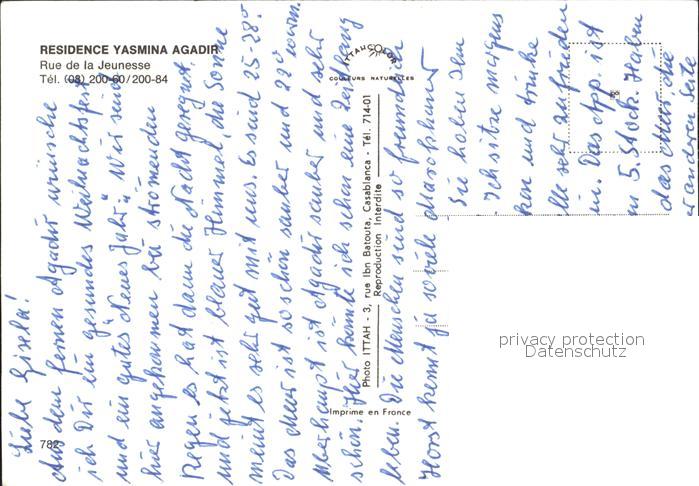 RESIDENCE YASMINA AGADIR
Rue de la Jeunesse
Tél. (08) 200-60/200-84
ITTAHCOLOR
COULEURS NATURELLES
Photo ITTAH - 3, rue Ibn Batouta, Casablanca - Tél. 714-01
Reproduction Interdite
Imprimé en France
782
privacy protection
Datenschutz
Liebe Gisela!
Aus dem fernen Agadir wünsche
ich Dir ein gesundes Weihnachtsfest
und ein gutes Neues Jahr". Wir sind
hier angekommen bei strömenden
Regen es hat dann die Nacht geregnet
und jetzt ist blauer Himmel, die Sonne
meint es sehr gut mit uns. Es sind 25-28°
Das Meer ist so schön sauber und 22° warm.
Überhaupt ist Agadir sauber und sehr
schön. Hier könnte ich schon eine Zeitlang
leben. Die Menschen sind so freundlich
Horst kennt ja so viele Marokkaner
Sie holen den
Ich sitze
und trinke
sehr zufrieden
in. Das App. ist
5. Stock. Haben
das